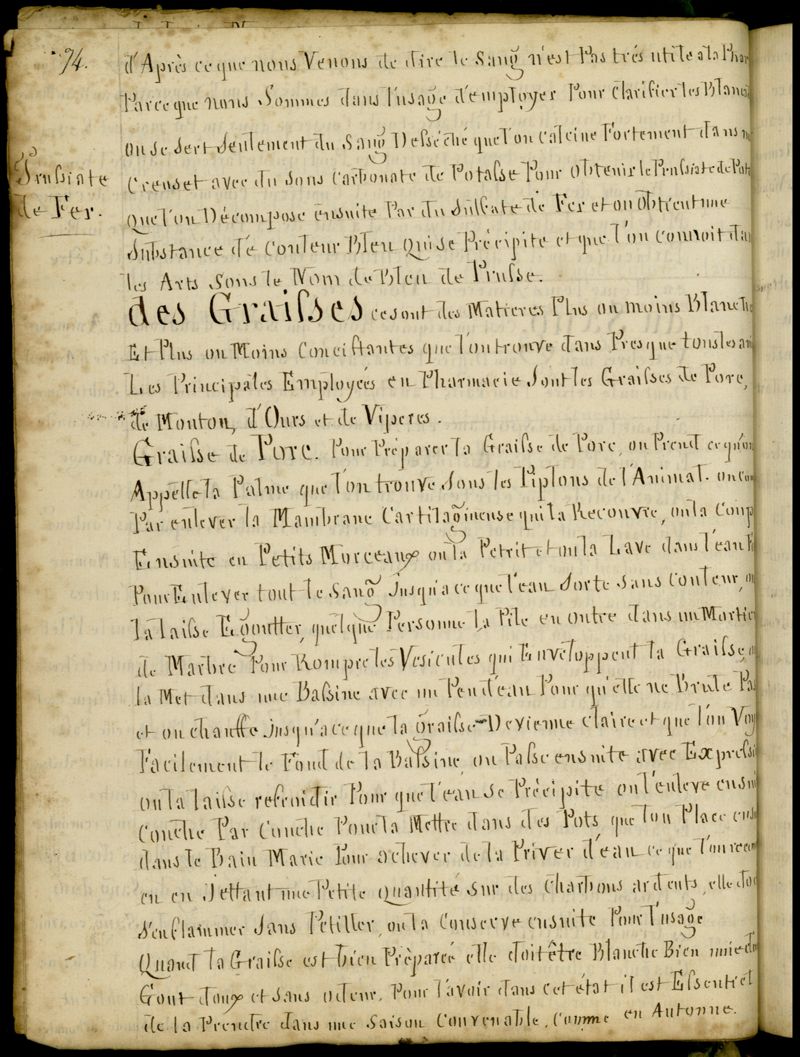 94.
d'Après ce que nous Venons de dire le Sang n'est Pas trés utile a la Phar
Parceque nous Sommes dans l'usage d'employer Pour Clarifier les Blancs
on se sert seulement du Sang Desséché que l'on calcine Fortement dans
Creuset avec du Sous Carbonate de Potasse Pour obtenir le Prussiate de Pot
Prussiate
de Fer.
que l'on Décompose ensuite Par du Sulfate de Fer et on obtient une
Substance de Couleur Bleu Qui se Précipite et que l'on Connoit da
les Arts Sous le Nom de Bleu de Prusse.
des Graisses ce sont des Matieres Plus ou moins Blanche
Et Plus ou Moins Concistantes que l'on trouve dans Presque tous les ani
Les Principales Employées en Pharmacie Sont les Graisses de Porc,
de Mouton, d'Ours et de Viperes.
Graisse de Porc. Pour Préparer la Graisse de Porc, on Prend ce qu'on
Appelle la Palme que l'on trouve Sous les Piplons de l'Animal. on com
Par enlever la Mambrane Cartilagineuse qui la Recouvre, on la Coup
Ensuite en Petits Morceaux on la Petrit et on la Lave dans l'eau
Pour Enlever tout le Sang Jusqu'a ce que l'eau Sorte Sans Couleur, on
la laisse Egoutter, quelque Personne la Pile en outre dans un Mortier
de Marbre Pour Rompre les Vesicules qui Enveloppent la Graisse, on
la Met dans une Bassine avec un Peu d'eau Pour qu'elle ne Brule Pas
et on chauffe Jusqu'a ce que la graisse Devienne claire et que l'on Voy
Facilement le Fond de la Bassine, on Passe ensuite avec Expressi
on la laisse refroidir Pour que l'eau se Précipite on l'enleve ensui
Couche Par Couche Pour la Mettre dans des Pots que l'on Place ensui
dans le Bain Marie Pour achever de la Priver d'eau ce que l'on recon
en en Jettant une Petite quantité sur des charbons ardents, elle doi
s'enflammer Sans Petiller, on la Conserve ensuite Pour l'usage
Quand la Graisse est bien Préparée elle doit être Blanche Bien unie d'
Gout doux et sans odeur. Pour l'avoir dans cet état il est Essentiel
de la Prendre dans une Saison Convenable, Comme en Automne.